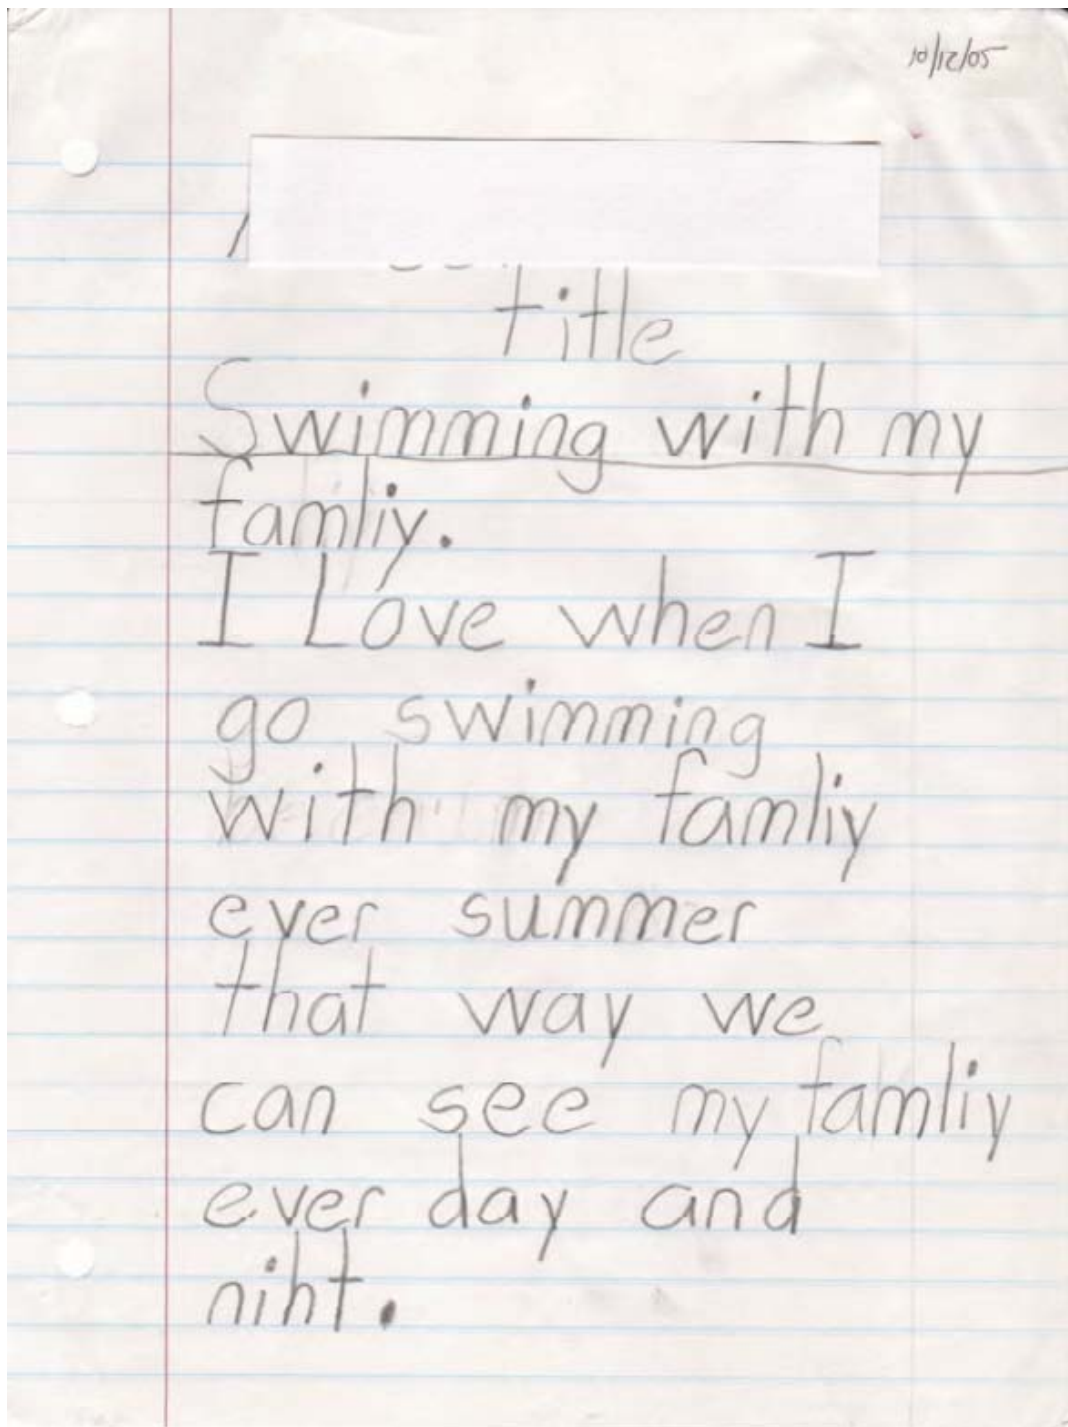 10/12/05
title
Swimming with my
famliy.
I Love when I
go swimming
with my famliy
ever summer
that way we
can see my famliy
ever day and
niht.